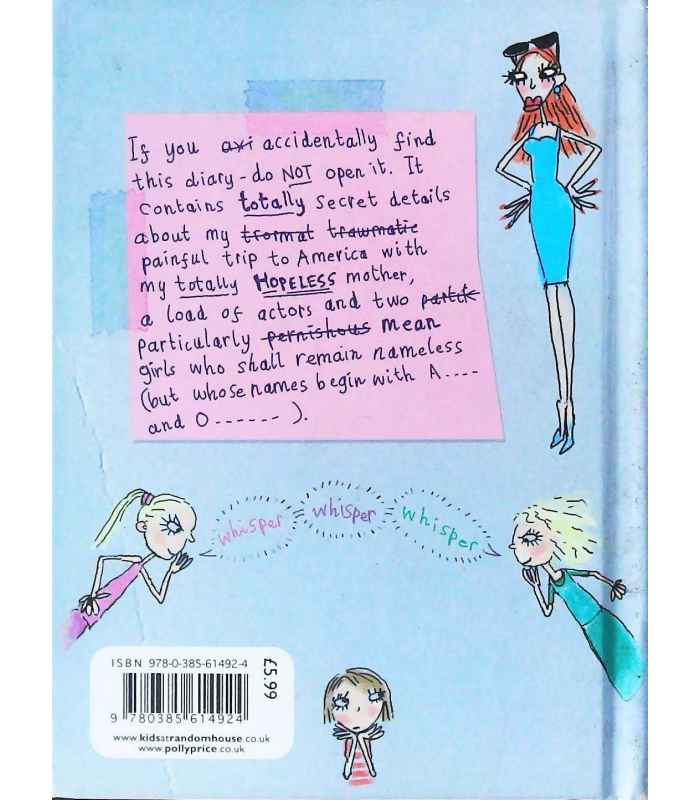 If you axi accidentally find
this diary - do NOT open it. It
contains totally secret details
about my trormat trawmatic
painful trip to America with
my totally HOPELESS mother,
a load of actors and two partik
particularly pernishous mean
girls who shall remain nameless
(but whose names begin with A----
and O------).
whisper whisper whisper
ISBN 978-0-385-61492-4
£5.99
9 780385 614924
www.kidsatrandomhouse.co.uk
www.pollyprice.co.uk